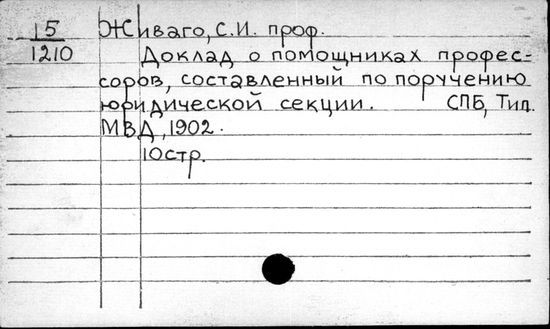 5
1210
Живаго, С.И. проф.
Доклад о помощниках профес-
соров, составленный по поручению
юридической секции. СПБ, Тип.
МВД, 1902.
10стр.